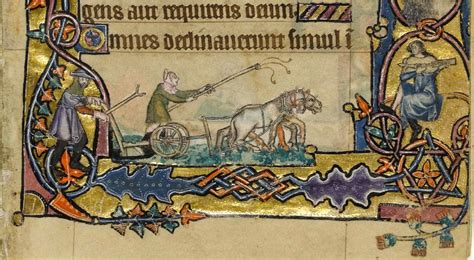 gens aut requirens deum
mnes declinauerunt simul i